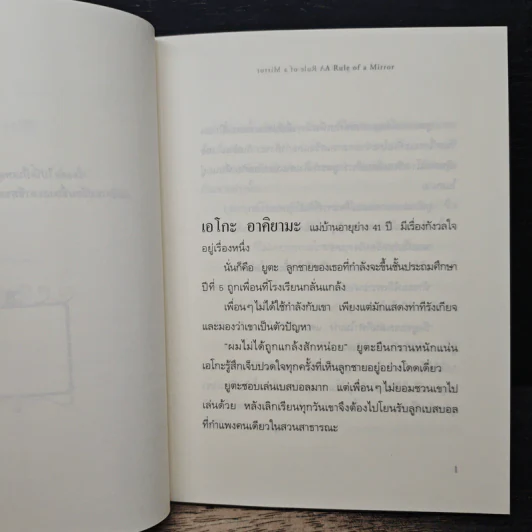 A Rule of a Mirror
เอโกะ อาคิยามะ แม่บ้านอายุย่าง 41 ปี มีเรื่องกังวลใจ
อยู่เรื่องหนึ่ง
นั่นก็คือ ยูตะ ลูกชายของเธอที่กำลังจะขึ้นชั้นประถมศึกษา
ปีที่ 5 ถูกเพื่อนที่โรงเรียนกลั่นแกล้ง
เพื่อนๆไม่ได้ใช้กำลังกับเขา เพียงแต่มักแสดงท่าทีรังเกียจ
และมองว่าเขาเป็นตัวปัญหา
"ผมไม่ได้ถูกแกล้งสักหน่อย" ยูตะยืนกรานหนักแน่น
เอโกะรู้สึกเจ็บปวดใจทุกครั้งที่เห็นลูกชายอยู่อย่างโดดเดี่ยว
ยูตะชอบเล่นเบสบอลมาก แต่เพื่อนๆไม่ยอมชวนเขาไป
เล่นด้วย หลังเลิกเรียนทุกวันเขาจึงต้องไปโยนรับลูกเบสบอล
ที่กำแพงคนเดียวในสวนสาธารณะ
1